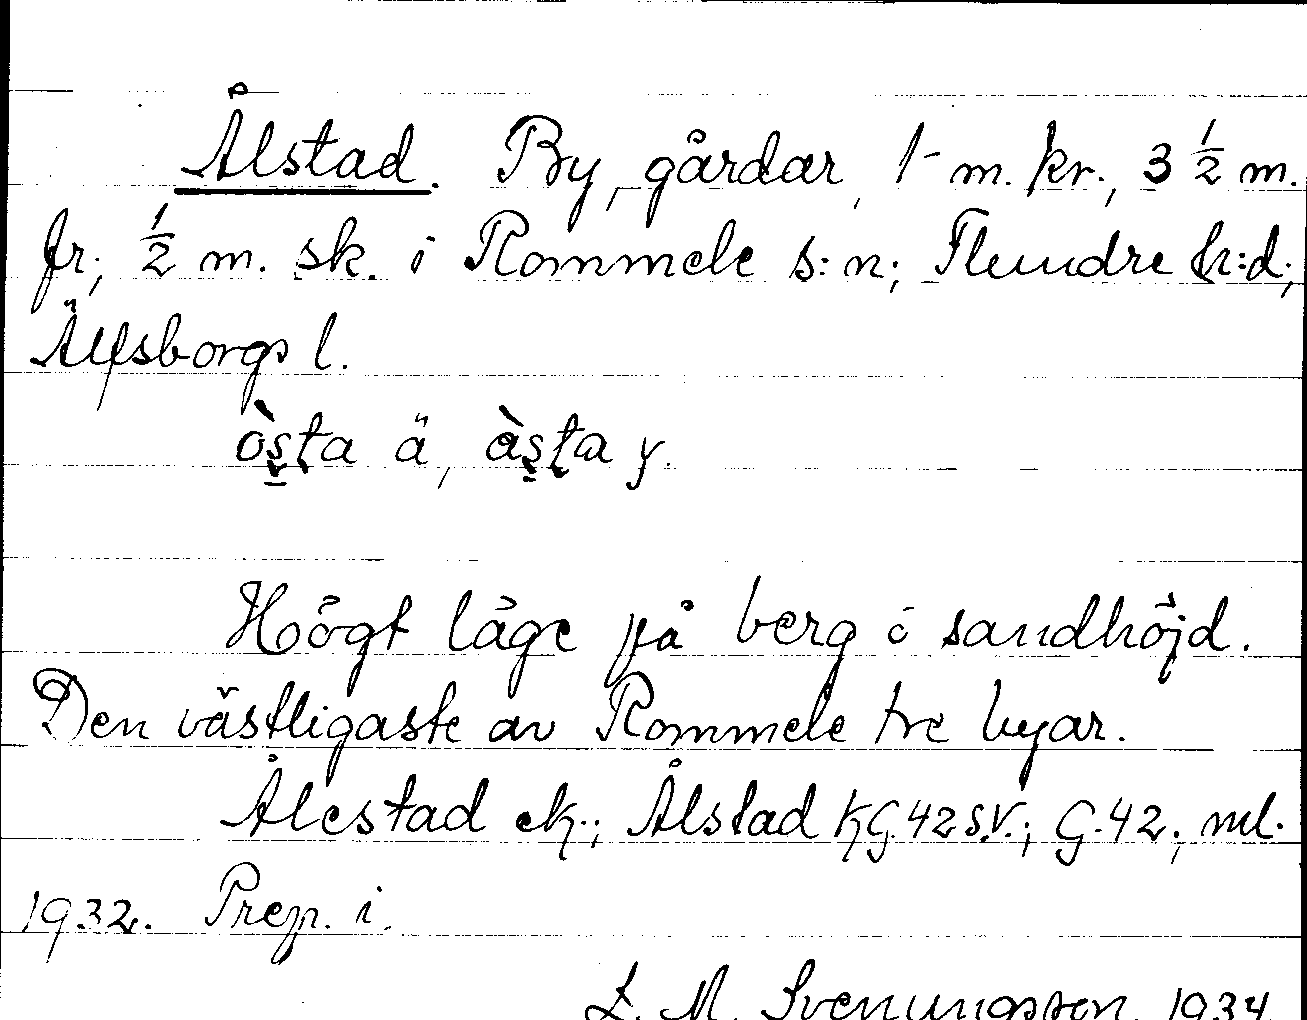 Ålstad. By, gårdar, 1 m. kr., 3 ½ m.
fr., ½ m. sk. i Rommele s:n; Flundre h:d;
Älfsborgs l.
òsta ä, àsta y.
Högt läge på berg o sandhöjd.
Den västligaste av Rommele tre byar.
Ålestad ek.; Ålstad KG.42 S.V.; G.42; ml.
1932. Prep. i.
L. M. Svenungsson 1934